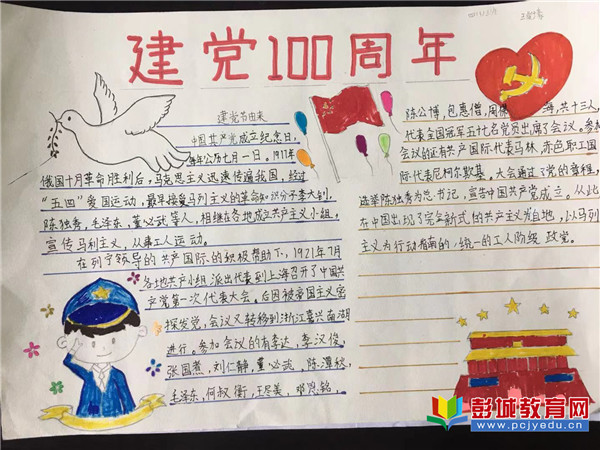 建党100周年
建党节由来
中国共产党成立纪念日,
每年公历七月一日。1917年
俄国十月革命胜利后,马克思主义迅速传遍我国,经过
“五四”爱国运动,最早接受马列主义的革命知识分子李大钊,
陈独秀,毛泽东,董必武等人,相继在各地成立共产主义小组,
宣传马利主义,从事工人运动。
在列宁领导的共产国际的积极帮助下,1921年7月
各地共产小组派出代表到上海召开了中国共
产党第一次代表大会。后因被帝国主义密
探发觉,会议又转移到浙江嘉兴南湖
进行。参加会议的有李达,李汉俊,
张国焘,刘仁静,董必武,陈潭秋,
毛泽东,何叔衡,王尽美,邓恩铭,
陈公博,包惠僧,周 海,共十三
代表全国冠军五十七名党员出席了会议。参加
会议的还有共产国际代表马林,赤色职工国
际代表尼柯尔斯基。大会通过了党的章程,
选举陈独秀为总书记,宣告中国共产党成立。从此
在中国出现了完全新式的共产主义为目地,以马列
主义为行动指南的,统一的工人阶级政党。
彭城教育网
www.pcjyedu.cn